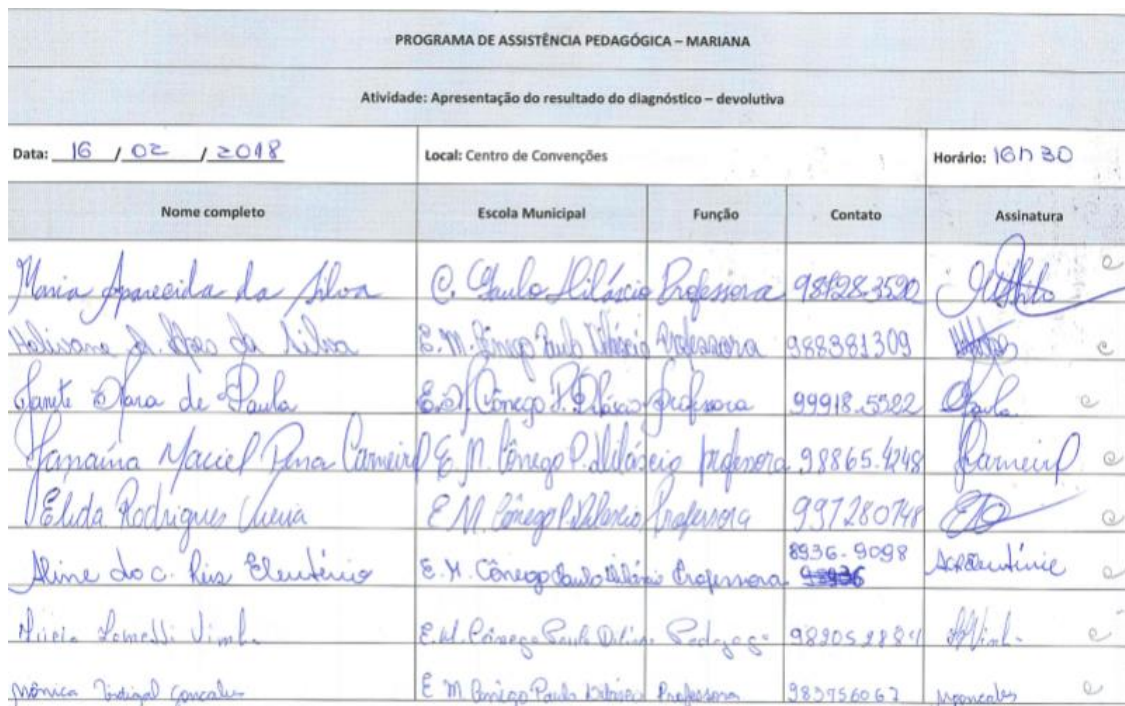 PROGRAMA DE ASSISTÊNCIA PEDAGÓGICA – MARIANA
Atividade: Apresentação do resultado do diagnóstico – devolutiva
Data: 16 / 02 / 2018 Local: Centro de Convenções Horário: 16h30
Nome completo Escola Municipal Função Contato Assinatura
Maria Aparecida da Silva C. Paulo Diláscio Professora
da Silva E. M. Cônego Paulo Diláscio Professora 988381309
de Paula E. M. Cônego P. Diláscio Professora 99918.5522 Paula
Janaína Maciel Pena Carneiro E. M. Cônego P. Diláscio professora 98865.4248 Carneiro
Élida Rodrigues Vieira E M Cônego P. Dilascio Professora 997280748
Aline do C. Reis Eleutério E. M. Cônego Paulo Dilásio Professora 8936-9098
E. M. Cônego Paulo Pedagoga
Mônica Gonçalves E M Cônego Paulo Dilascio Professora 983756067